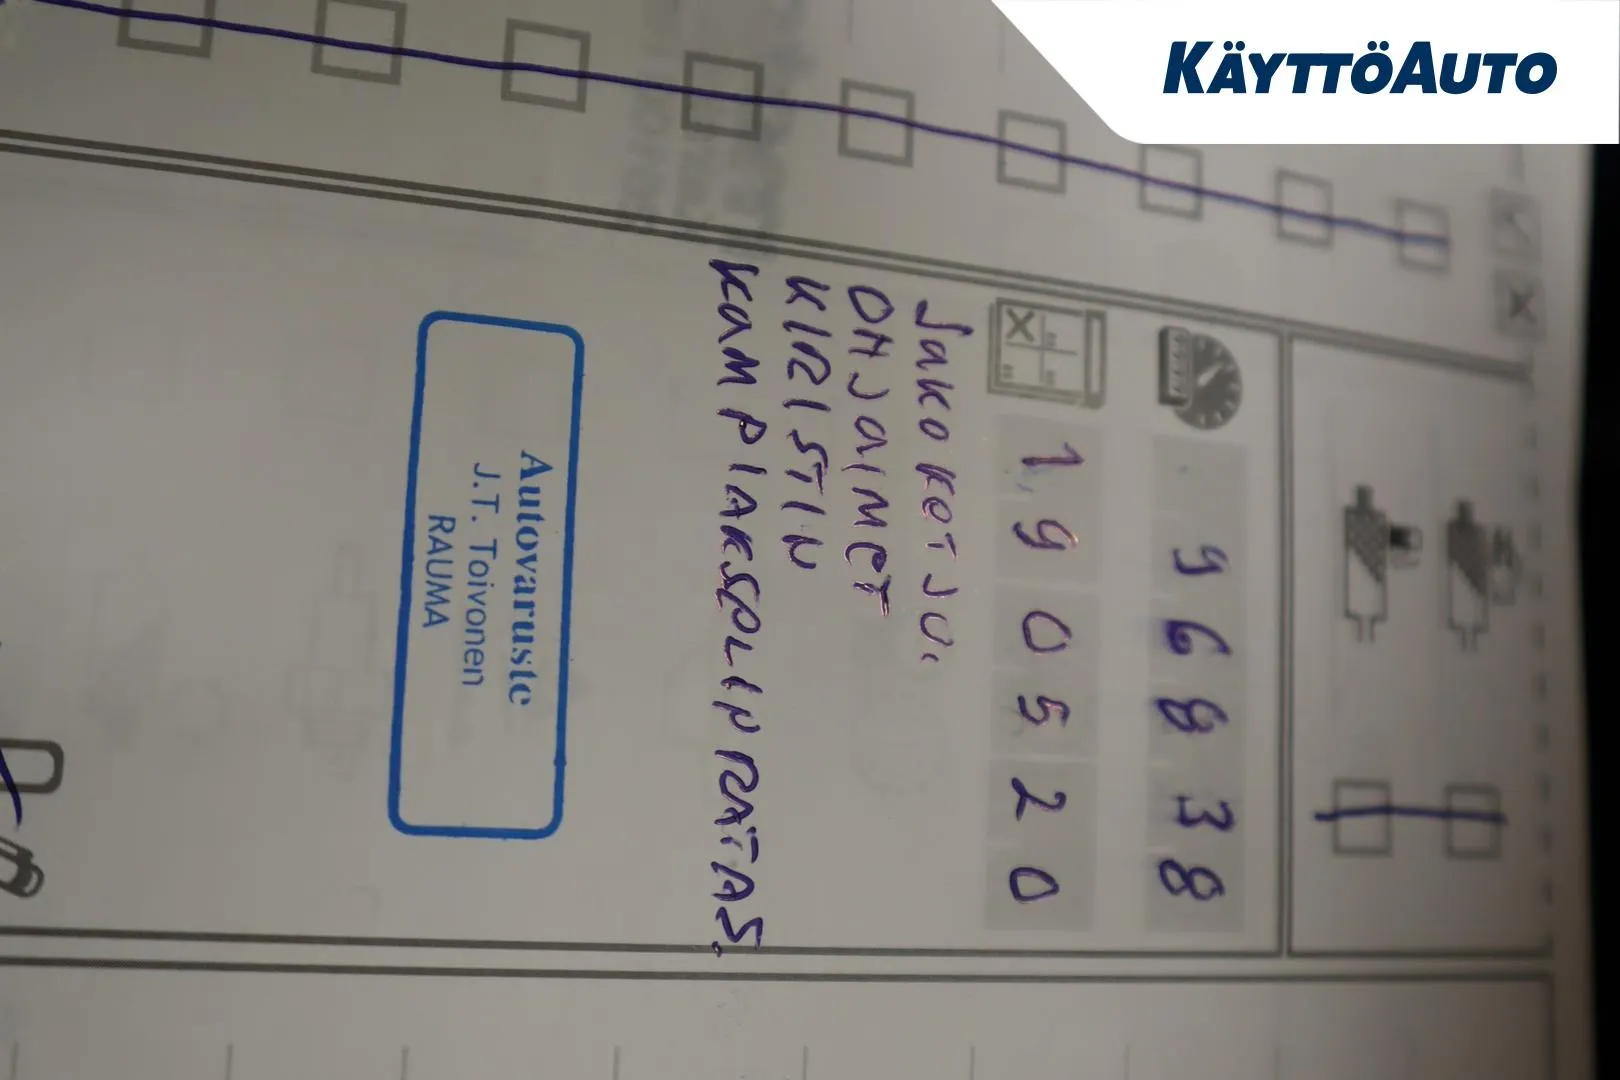 KÄYTTÖAUTO
96838
190520
Jakoketju.
OHJAIMET
KIRISTIN
KAMPIAKSELIN RATAS.
Autovaruste
J.T. Toivonen
RAUMA